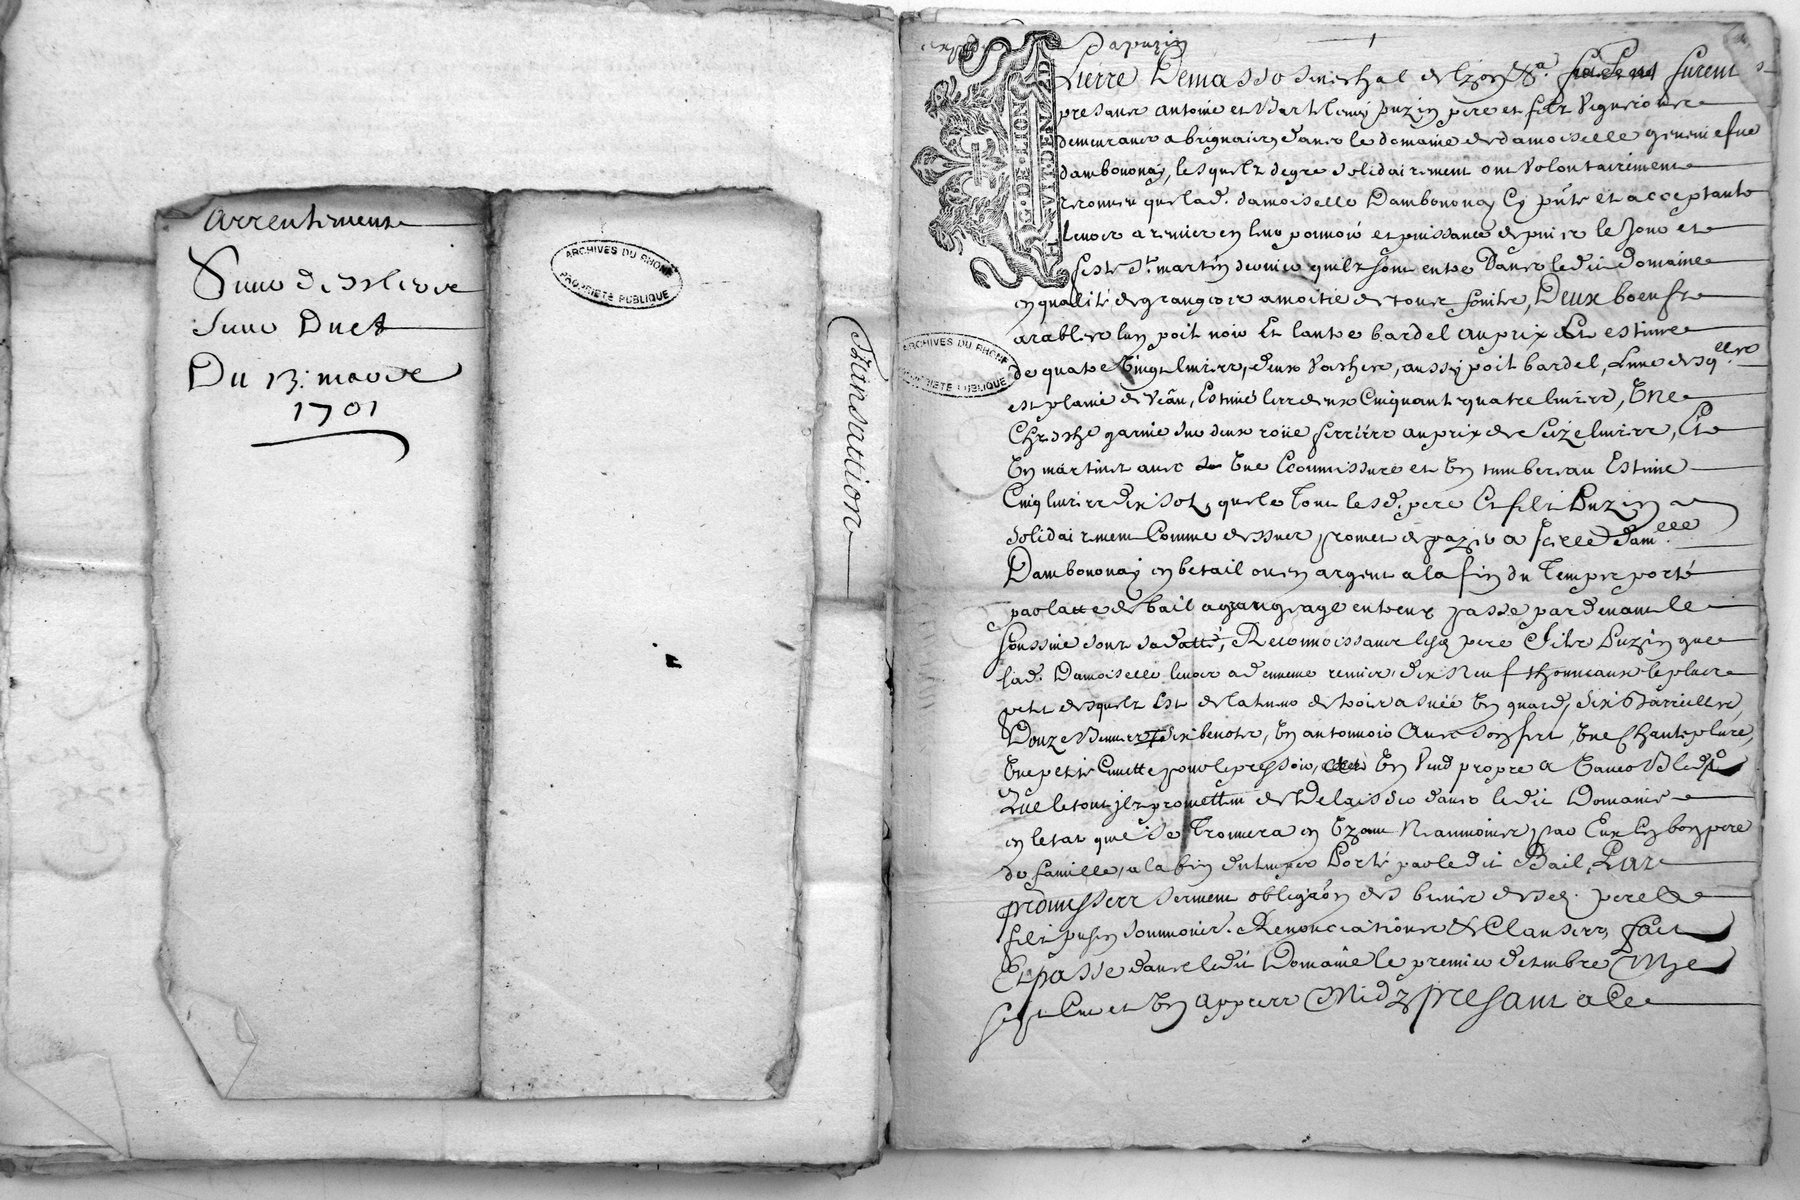 arrentement
Du 13. mars
1701
ARCHIVES DU RHONE
PROPRIETE PUBLIQUE
Transaction
G. DE. LION
ARCHIVES DU RHONE
PROPRIETE PUBLIQUE
Pierre Demasso senechal de lyon &a. furent
presans antoine et Barthlemy puzin pere et filz Vignerons
demeurans a brignais dans le domaine de damoiselle geneviefve
dambournay, lesquelz de gre solidairement ont Volontairement
reconneu que lad. damoiselle Dambournay Cy pnte et acceptante
leur a remis en leur pouvoir et puissance depuis le Jour et
feste St. martin dernier quilz sont entre dans ledit domaine
en qualité de grangers a moitie de tous fruits, Deux boeufs
arables lun poil noir Et lautre bardel au prix Et estime
de quatre Vingt livres, deux Vaches, aussy poil bardel, Lune desqlles
est plaine de Veau, Estimé les deux Cinquante quatre livres, Une
garnie de deux roue ferrées au prix de Seize livres, Et
Un martinet avec Une et Un tumbereau Estimé
Cinq livres dix solz, que le Tout lesd. pere Et filz Puzin
solidairement Comme dessus, promet de payer a lad. dam.elle
Dambournay en betail ou en argent a la fin du Temps porté
par lacte de bail a grangeage entreux passe pardevant le
soussigné sous sa datte, Reconnoissans lesd. pere & filz Puzin que
lad. Damoiselle leur a de mesme remis, dix Neuf thonneaux le plus
petit desquelz Est de la tenue de trois asnée Un quard, dix Barrielles,
Douze Bennes, six benotes, Un antonnoir avec son fert, Une Chanteplure,
Une petite Cuvette pour le pressoir, Un Vend propre a Vaner Bleds
Que le tout ilz promettent de Delaisser dans ledit Domaine
en letat que se Trouvera en Uzant Neanmoins par Eux En bon pere
de famille, a la fin du temps Porté par ledit Bail, Par
promesses serment obligaon des biens desd. pere &
filz puzin soummons. Renonciations & Clauses, fait
Et passe dans ledit Domaine le premier decembre Mil
sept Cent et Un appres Midy presant a Ce